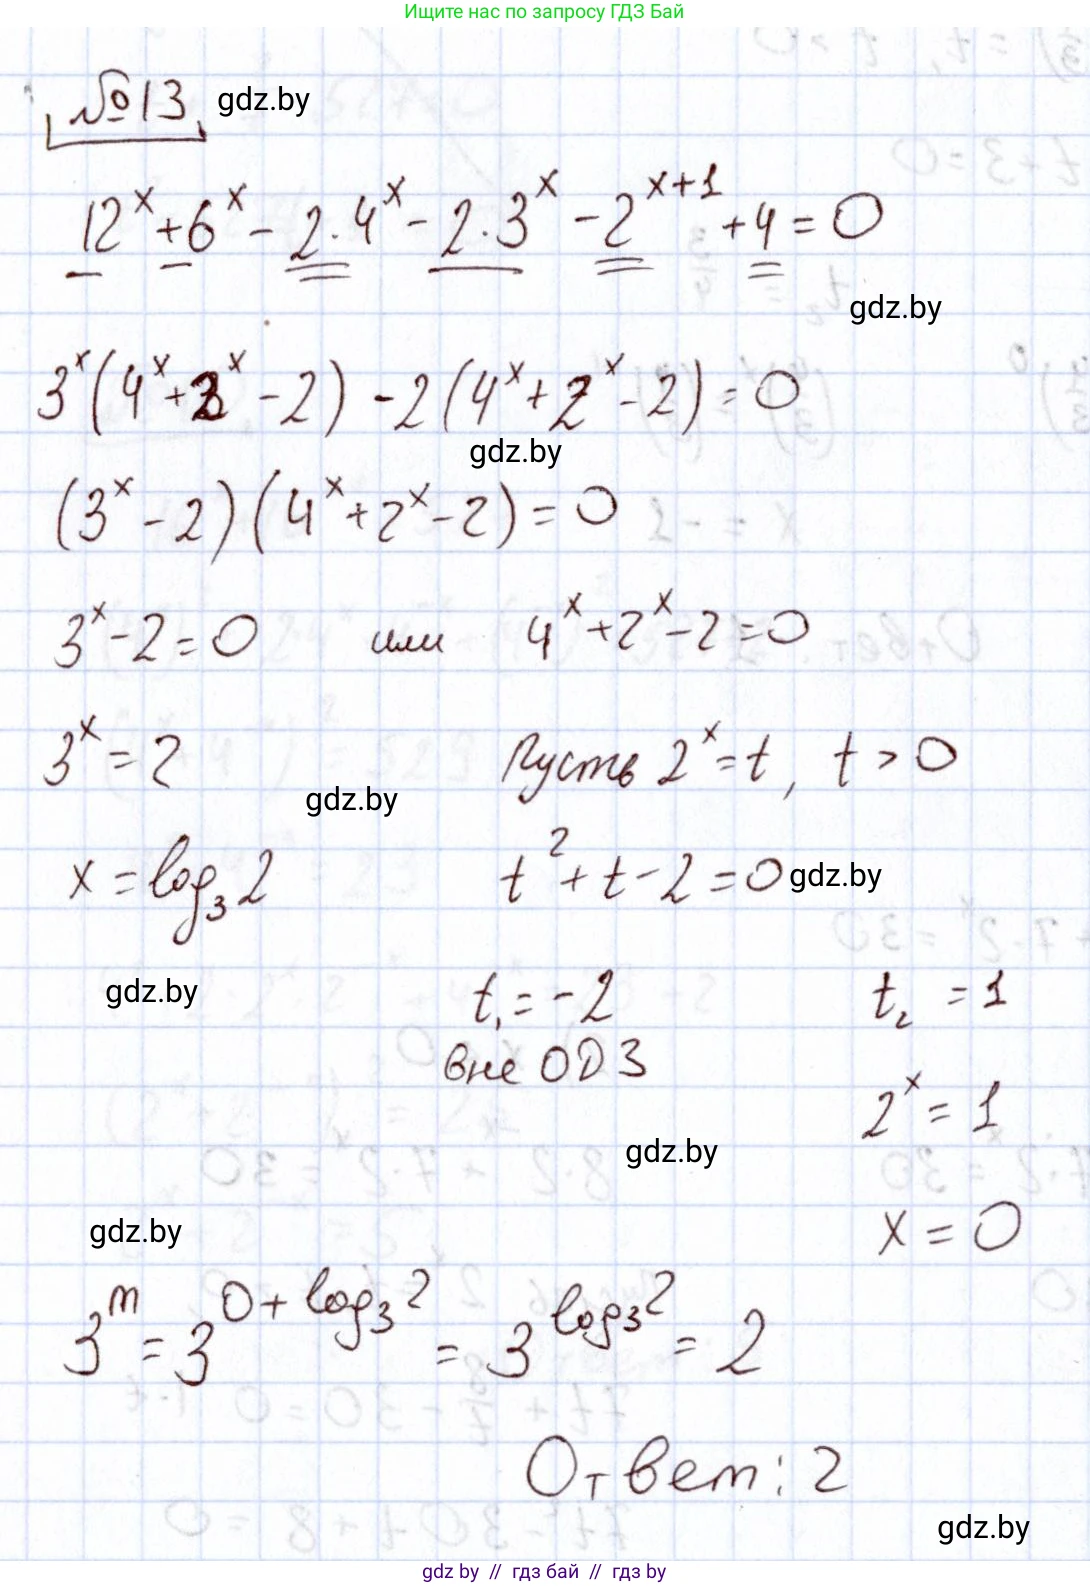 Ищите нас по запросу ГДЗ Бай
№13 gdz.by
12^x + 6^x - 2·4^x - 2·3^x - 2^{x+1} + 4 = 0
gdz.by
3^x (4^x + 2^x - 2) - 2 (4^x + 2^x - 2) = 0
gdz.by
(3^x - 2) (4^x + 2^x - 2) = 0
3^x - 2 = 0 или 4^x + 2^x - 2 = 0
3^x = 2 Пусть 2^x = t, t > 0
gdz.by
x = log_3 2 t^2 + t - 2 = 0 gdz.by
gdz.by t_1 = -2 t_2 = 1
вне ОДЗ
2^x = 1
gdz.by
gdz.by x = 0
3^m = 3^{0 + log_3 2} = 3^{log_3 2} = 2
Ответ: 2
gdz.by
gdz.by // гдз бай // gdz.by